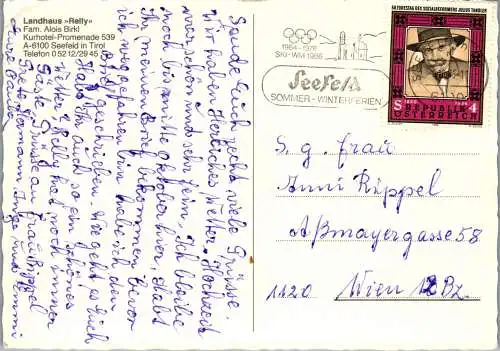 Landhaus »Relly«
Fam. Alois Birkl
Kurhotel-Promenade 539
A-6100 Seefeld in Tirol
Telefon 0 52 12/29 45
Sende Euch recht viele Grüsse.
Wir haben herrliches Wetter, Hochzeit
war schön und sehr fein, Ich bleibe
noch bis mitte Oktober hier, Habt
ihr meinen Brief bekommen? Bevor
ich weggefahren bin habe ich den
Brief geschrieben. Wie geht es Euch
Habt Ihr auch so ein schönes
Wetter? Relly hat noch immer
Gäste, Grüsse an Frau Rüppel
Grete Hermann, Inge und Emmi
Eure
1964-1976
SKI-WM 1985
Seefeld
SOMMER-WINTERFERIEN
80. TODESTAG DES SOZIALREFORMERS JULIUS TANDLER
S 4
REPUBLIK
ÖSTERREICH
S. g. Frau
Anni Rüppel
Aßmayergasse 58
1120 Wien 12 Bz.